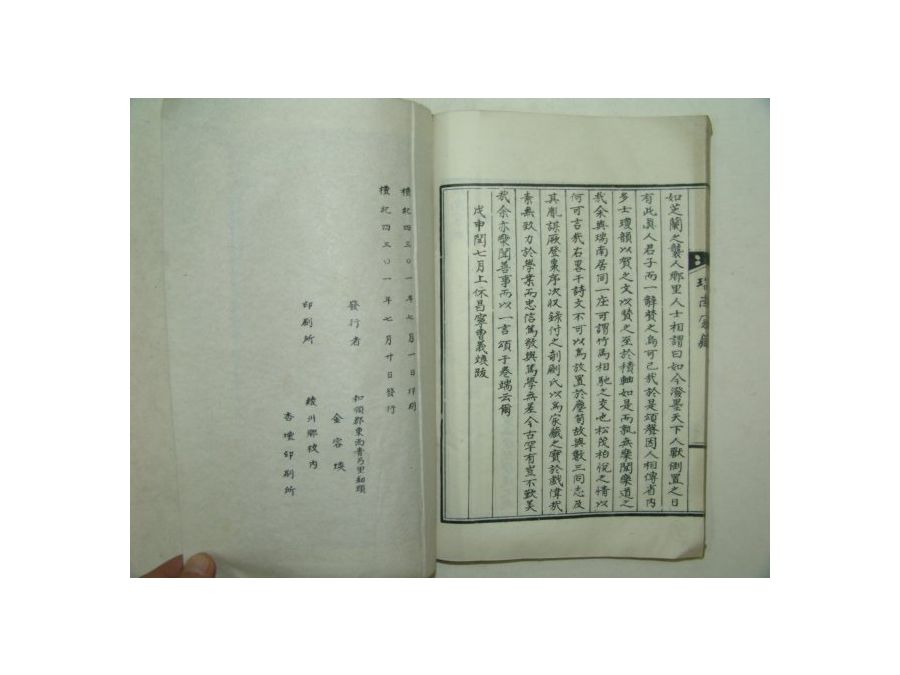 如芝蘭之襲人鄕里人士相謂曰如今潑墨天下人獸倒置之日
有此眞人君子而一辭贊之烏可已哉於是頌聲因人相傳省內
多士瓊韻以賀之文以贊之至於積軸如是而孰無樂聞樂道之
哉余與瑞南居同一座可謂竹馬相馳之交也松茂柏悅之情以
何可言哉右畧干詩文不可以爲放置於塵筍故與數三同志及
其胤謀厥登棗序次收錄付之剞劂氏以爲家藏之寶於戲偉哉
素無致力於學業而忠信篤敬與篤學無差今古罕有豈不歎美
哉余亦樂聞善事而以一言頌于卷端云爾
戊申閏七月上休昌寧曺義煥跋
瑞南
檀紀四三〇一年七月一日印刷
檀紀四三〇一年七月廿日發行
和順郡東面靑乃里
發行者 金容煐
綾州鄕校內
印刷所 杏壇印刷所